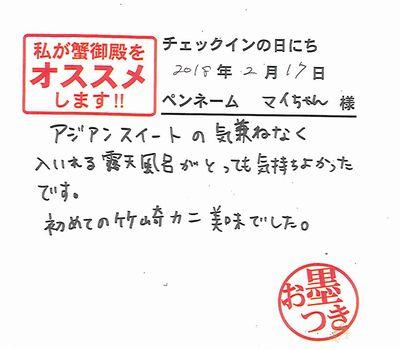 私が蟹御殿を
オススメ
します!!
チェックインの日にち
2018年2月17日
ペンネーム マイちゃん 様
アジアンスイートの気兼ねなく
入いれる露天風呂がとっても気持ちよかった
です。
初めての竹崎カニ美味でした。
お墨つき